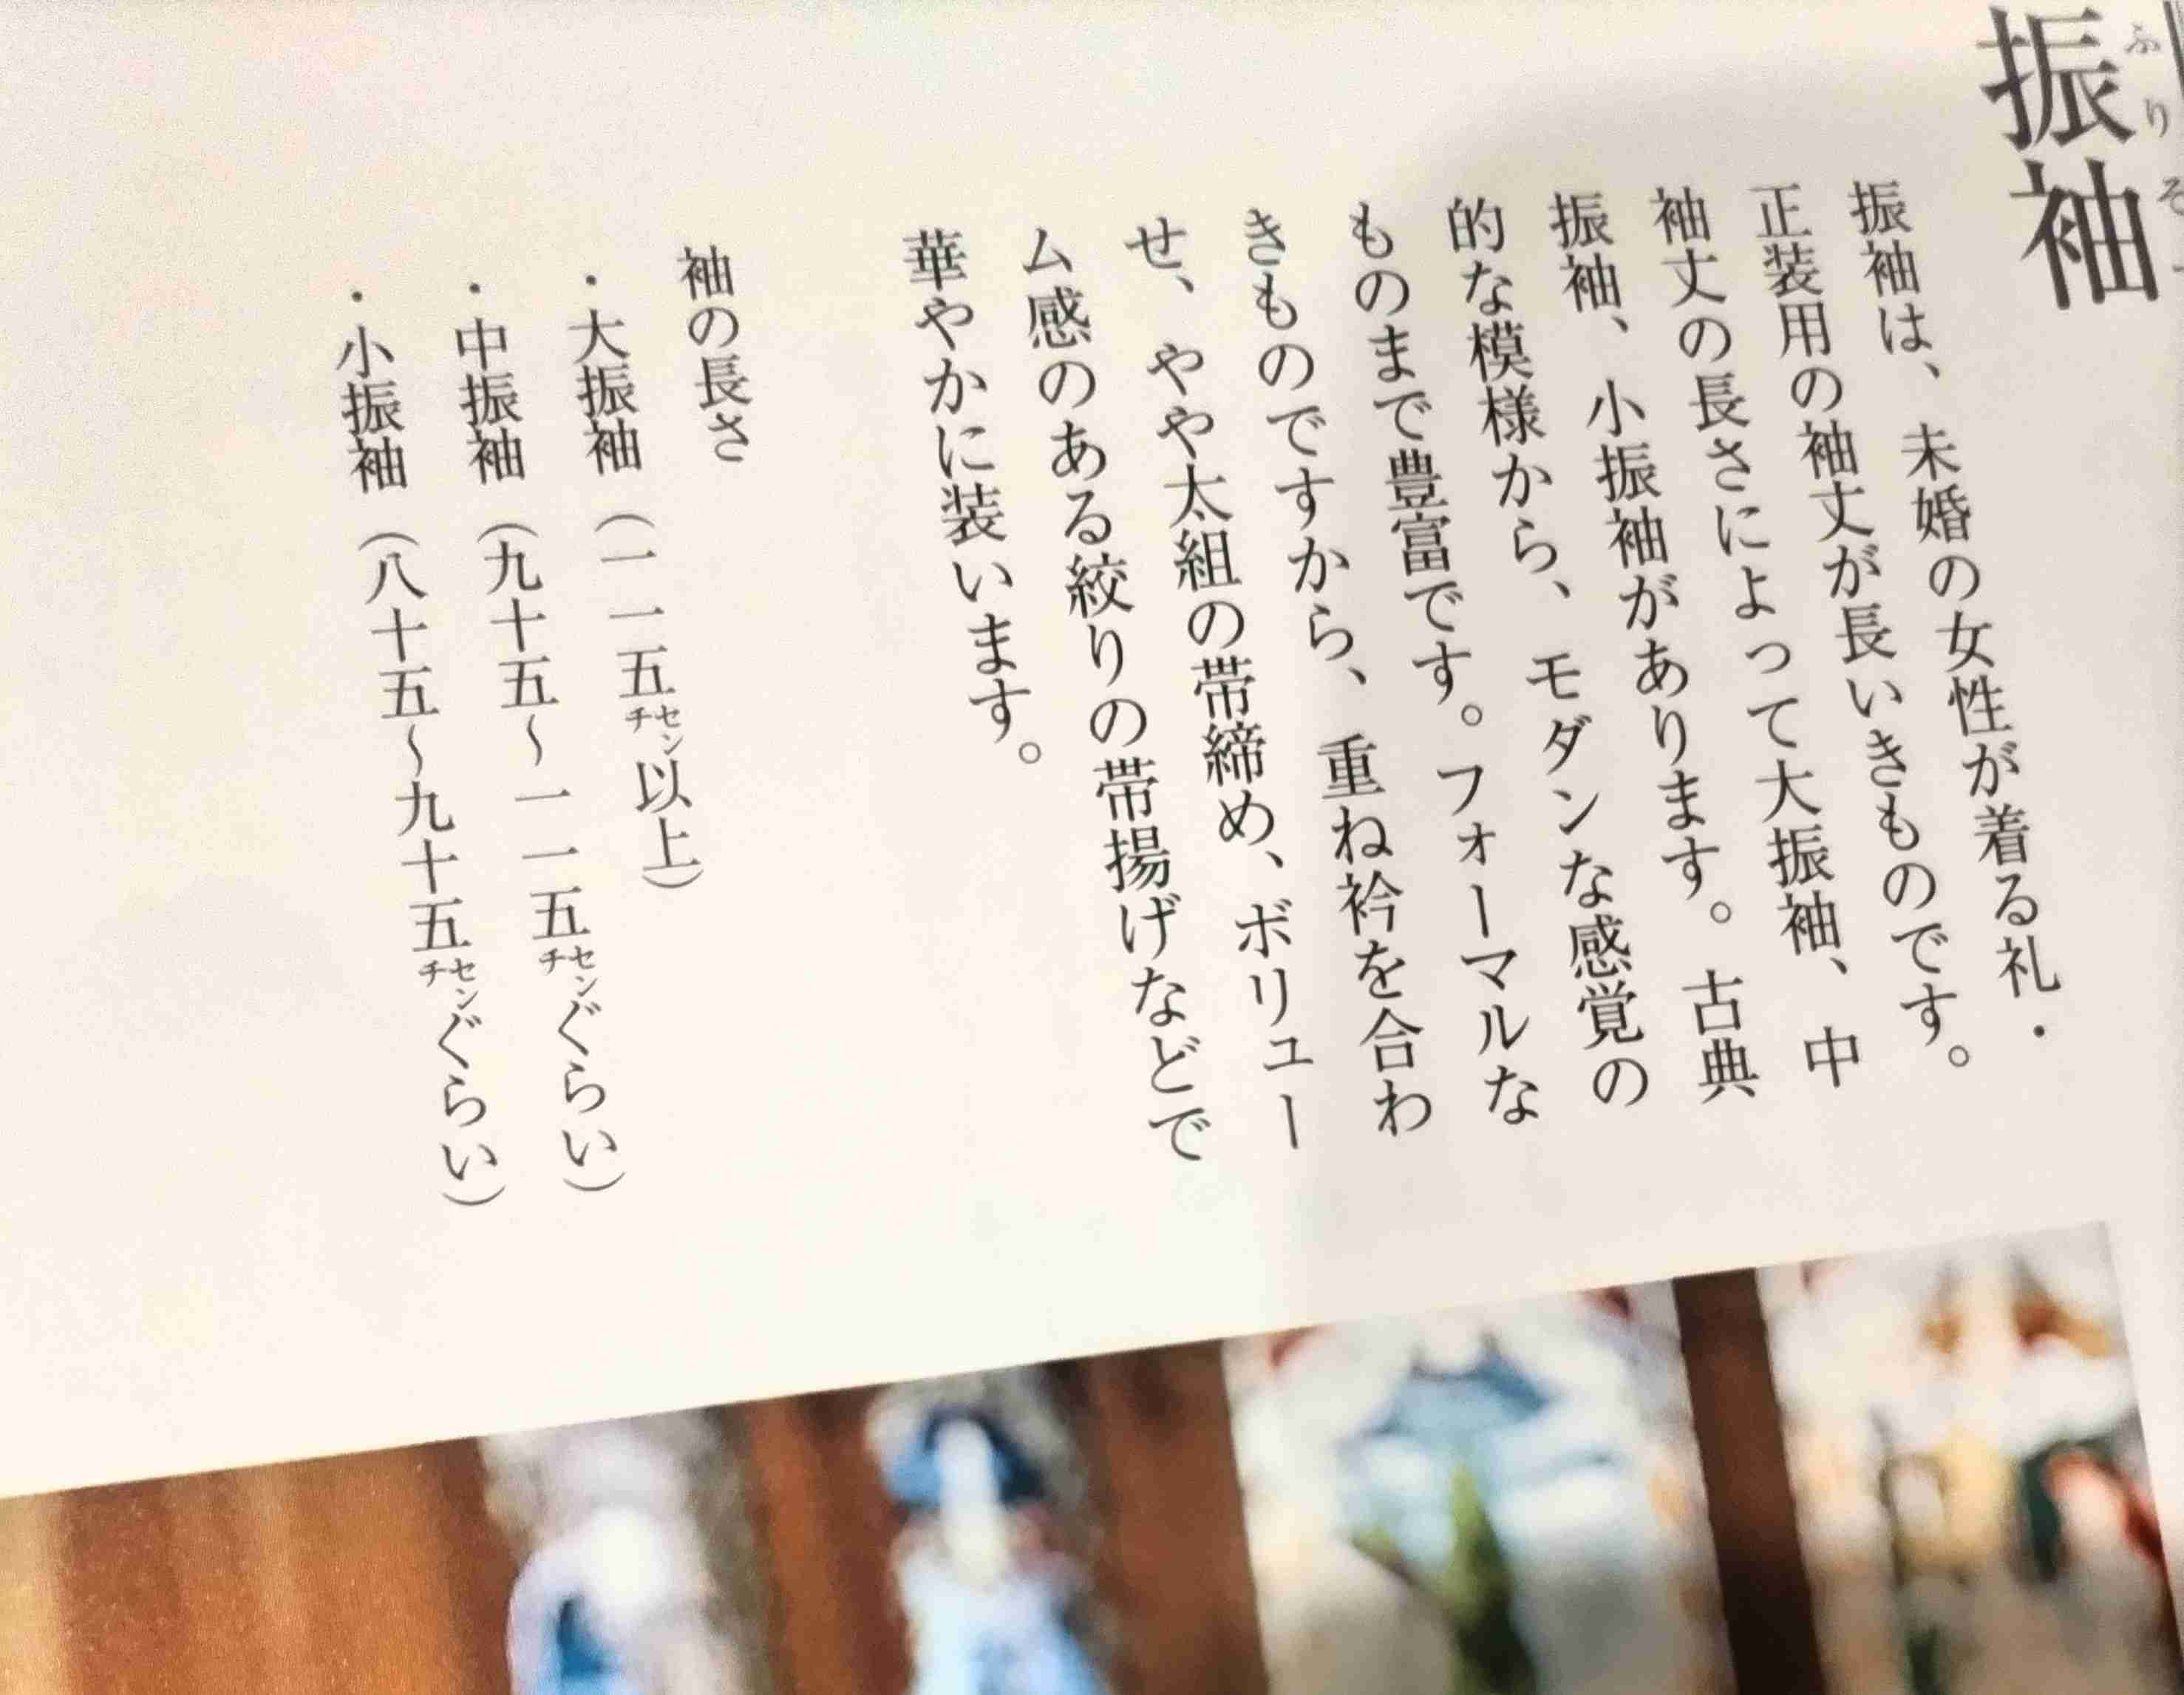 振袖
ふりそ
振袖は、未婚の女性が着る礼・
正装用の袖丈が長いきものです。
袖丈の長さによって大振袖、中
振袖、小振袖があります。古典
的な模様から、モダンな感覚の
ものまで豊富です。フォーマルな
きものですから、重ね衿を合わ
せ、やや太組の帯締め、ボリュー
ム感のある絞りの帯揚げなどで
華やかに装います。
袖の長さ
・大振袖（一一五センチ以上）
・中振袖（九十五〜一一五センチぐらい）
・小振袖（八十五〜九十五センチぐらい）